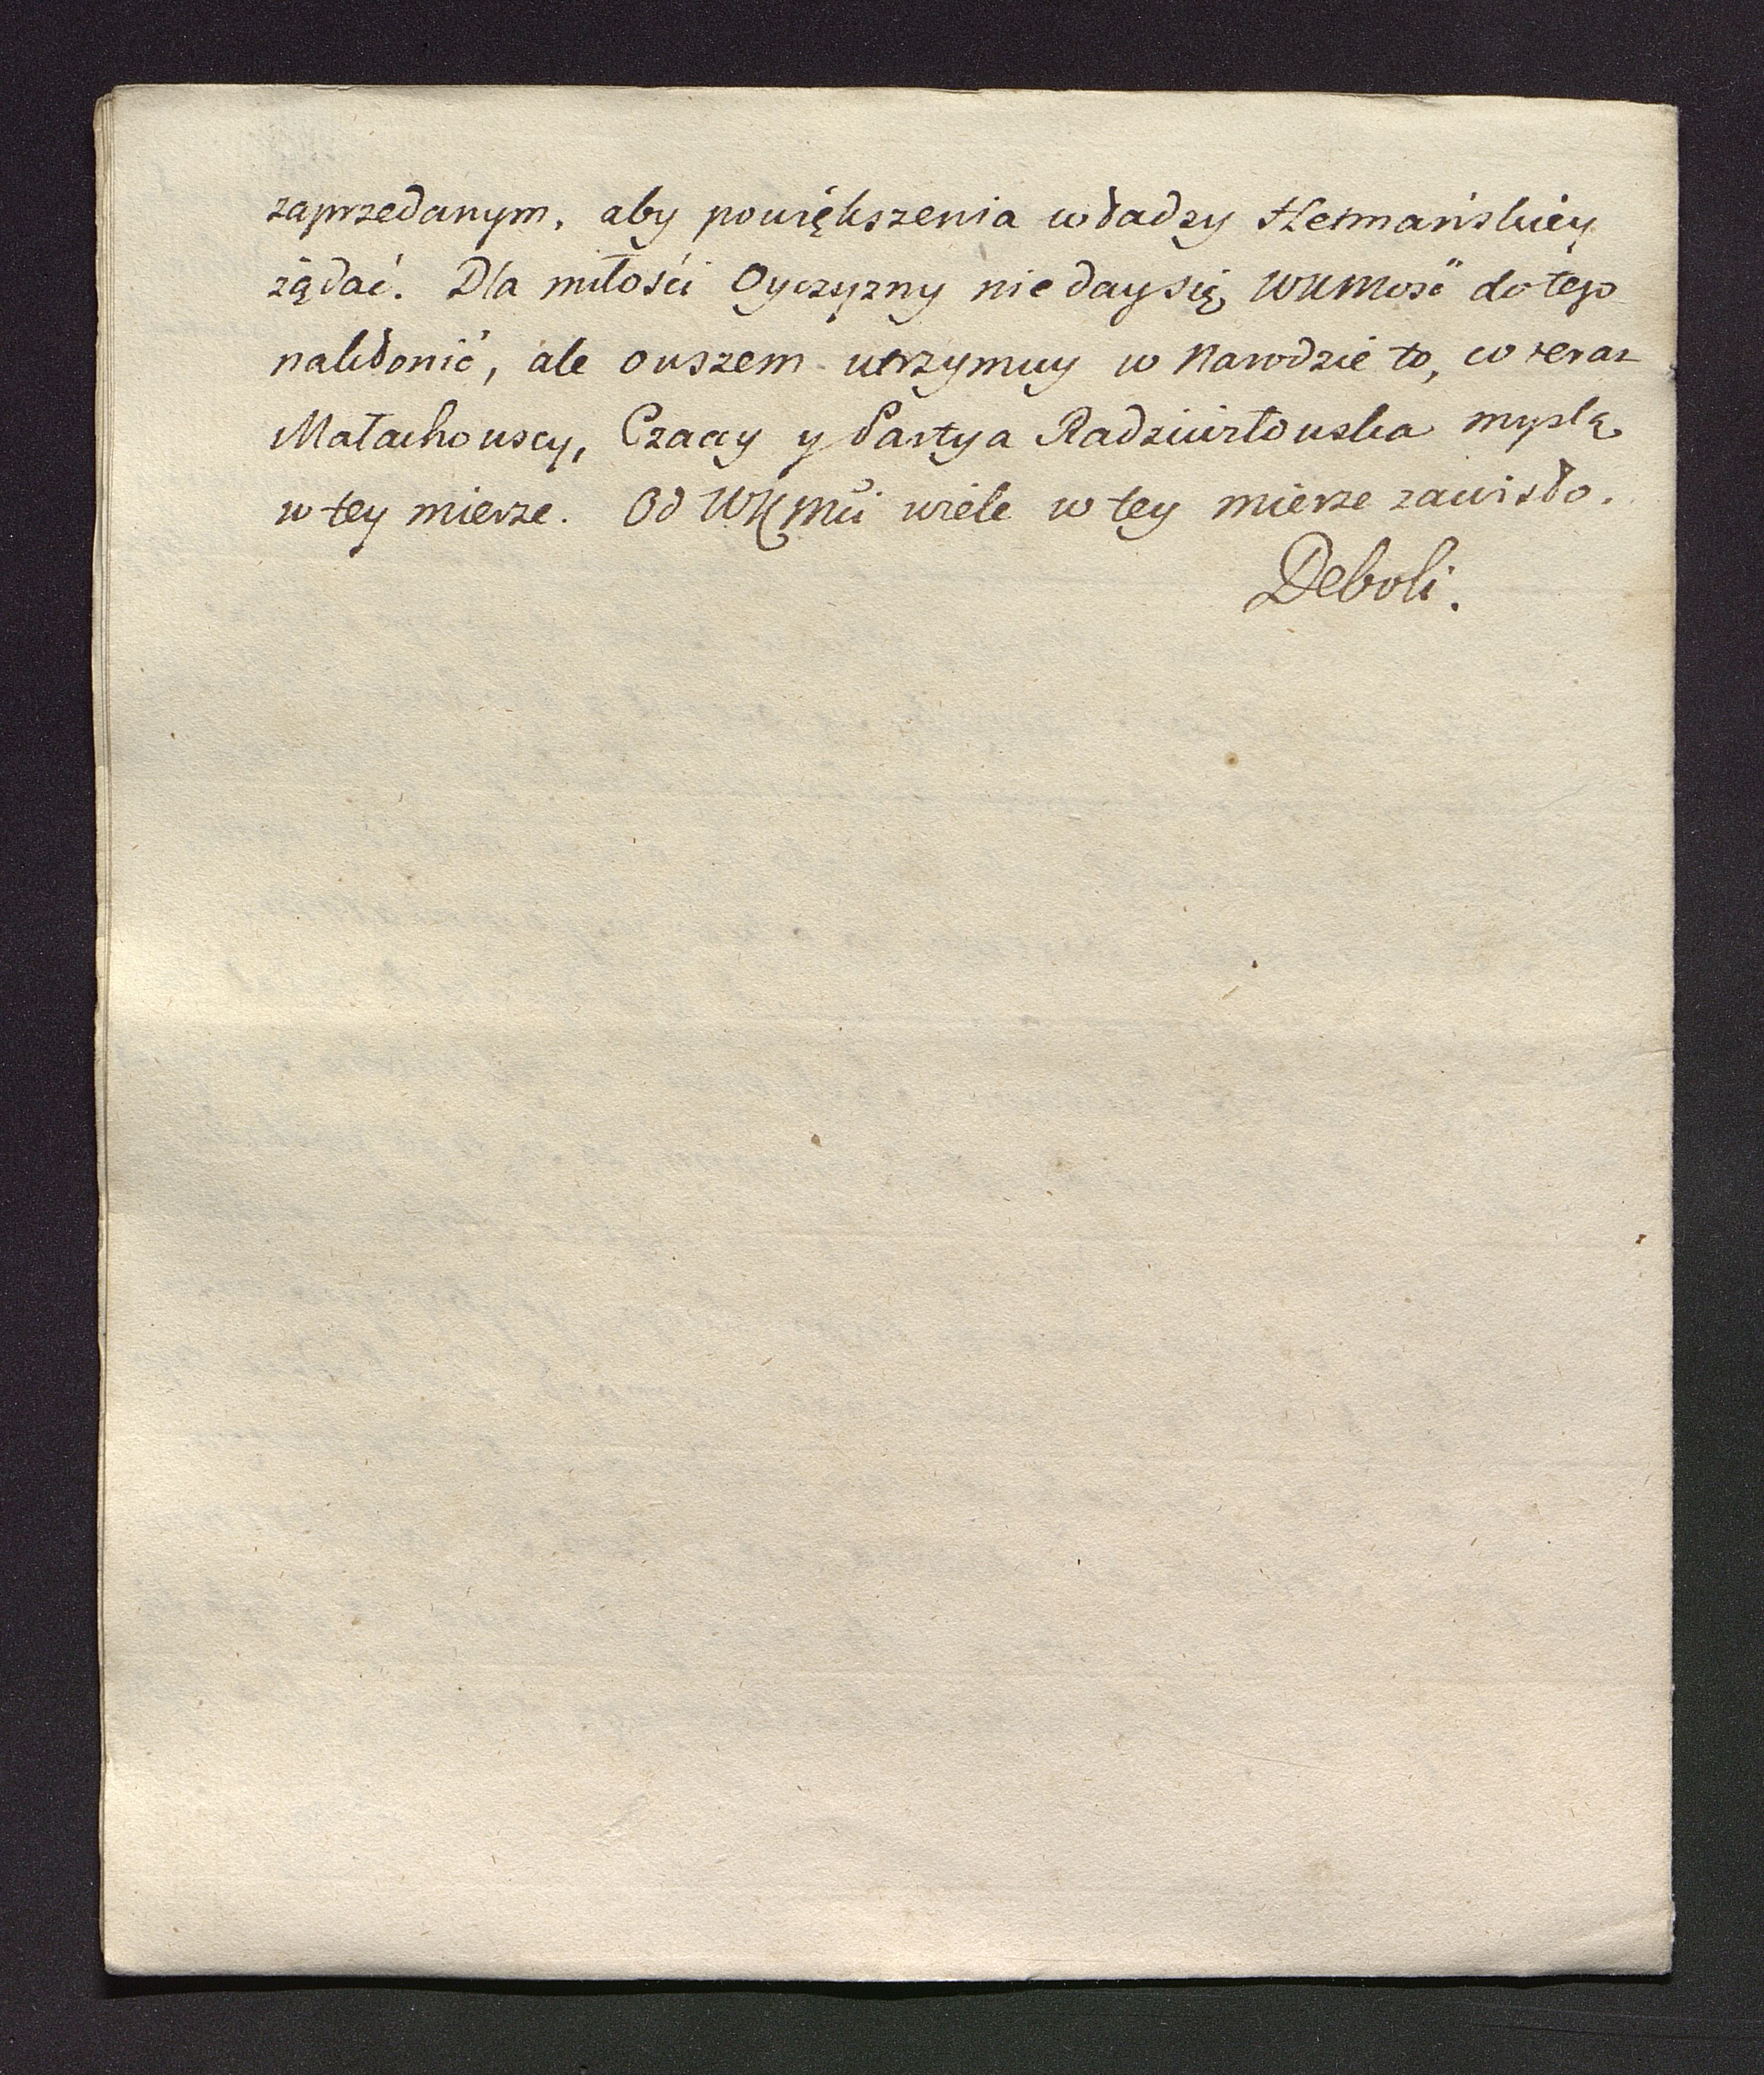 zaprzedanym, aby powiększenia władzy Hetmańskiey
żądać. Dla miłości Oyczyzny nie day się WKMość do tego
nakłonić, ale owszem utrzymuy w Narodzie to, co teraz
Małachowscy, Czaccy y Partya Radziwiłłowska myślą
w tey mierze. Od WKMci wiele w tey mierze zawisło.
Deboli.